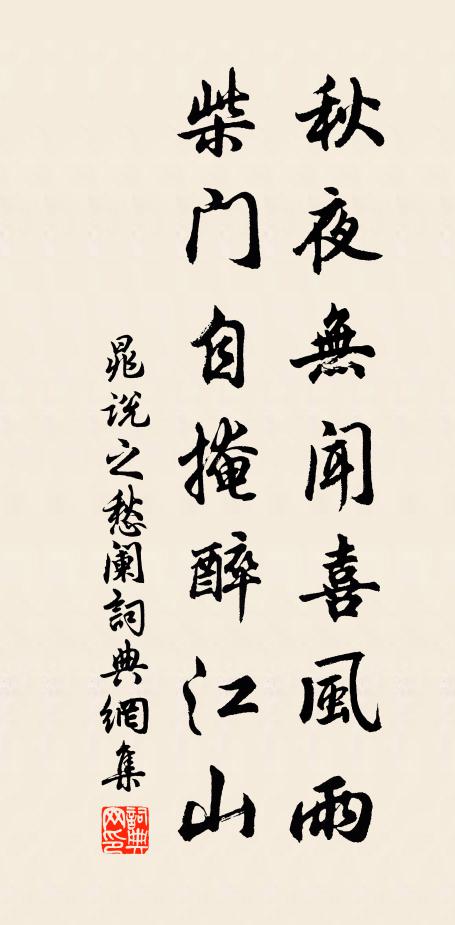 秋夜無闻喜風雨
柴门自掩醉江山
晁说之愁阑詞典網集
詞典网印